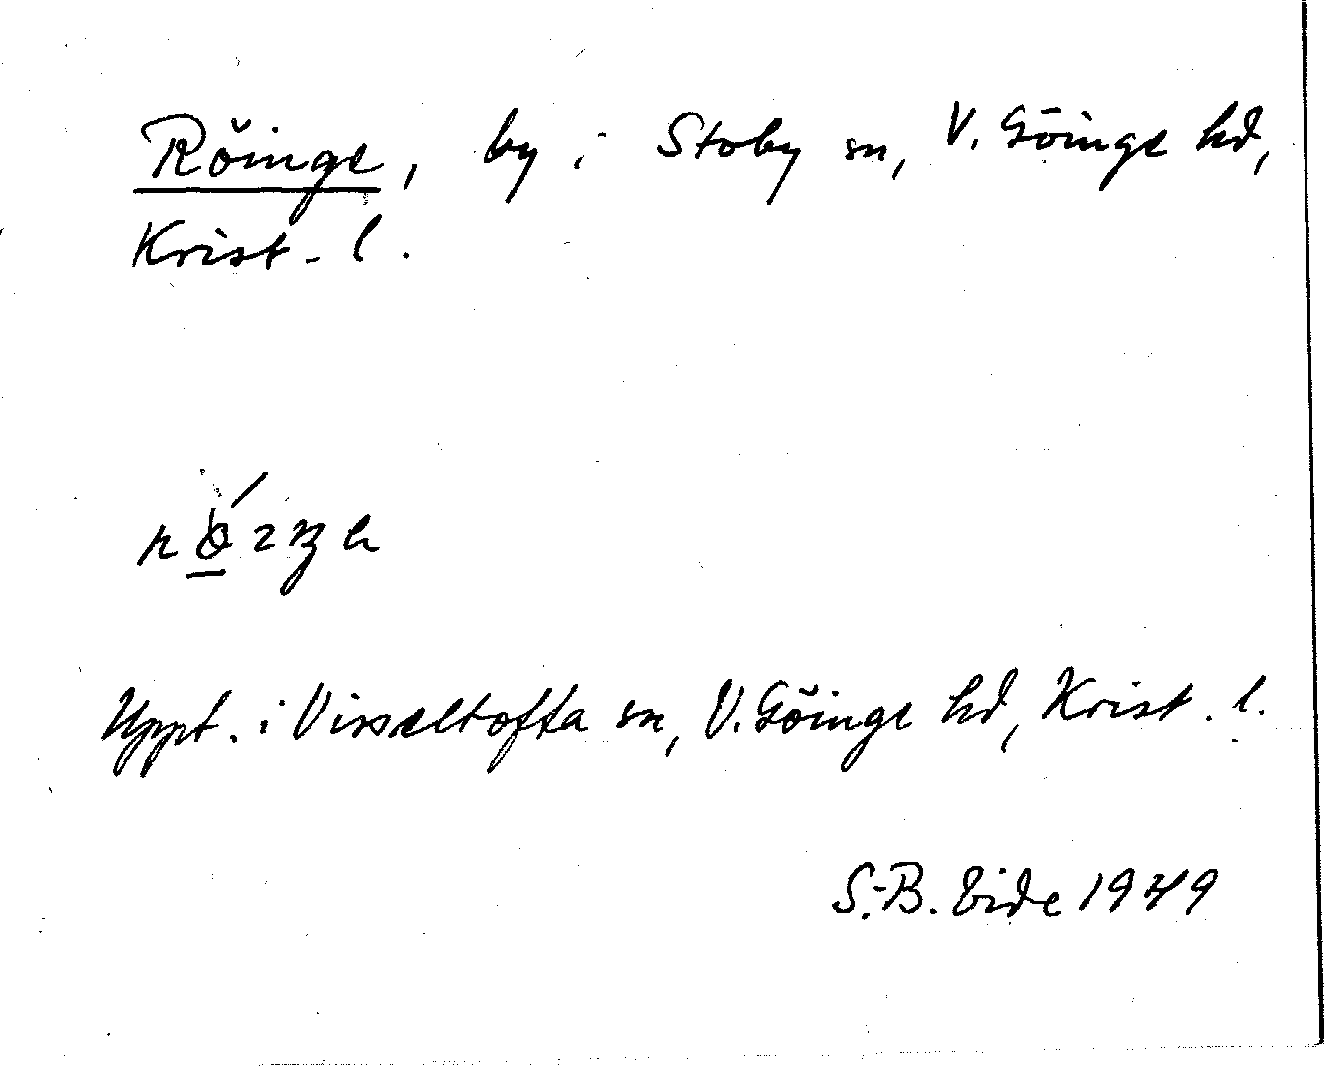 Röinge, by i Stoby sn, V. Göinge hd,
Krist. l.
Uppt. i Visseltofta sn, V. Göinge hd, Krist. l.
S.-B. Vide 1949